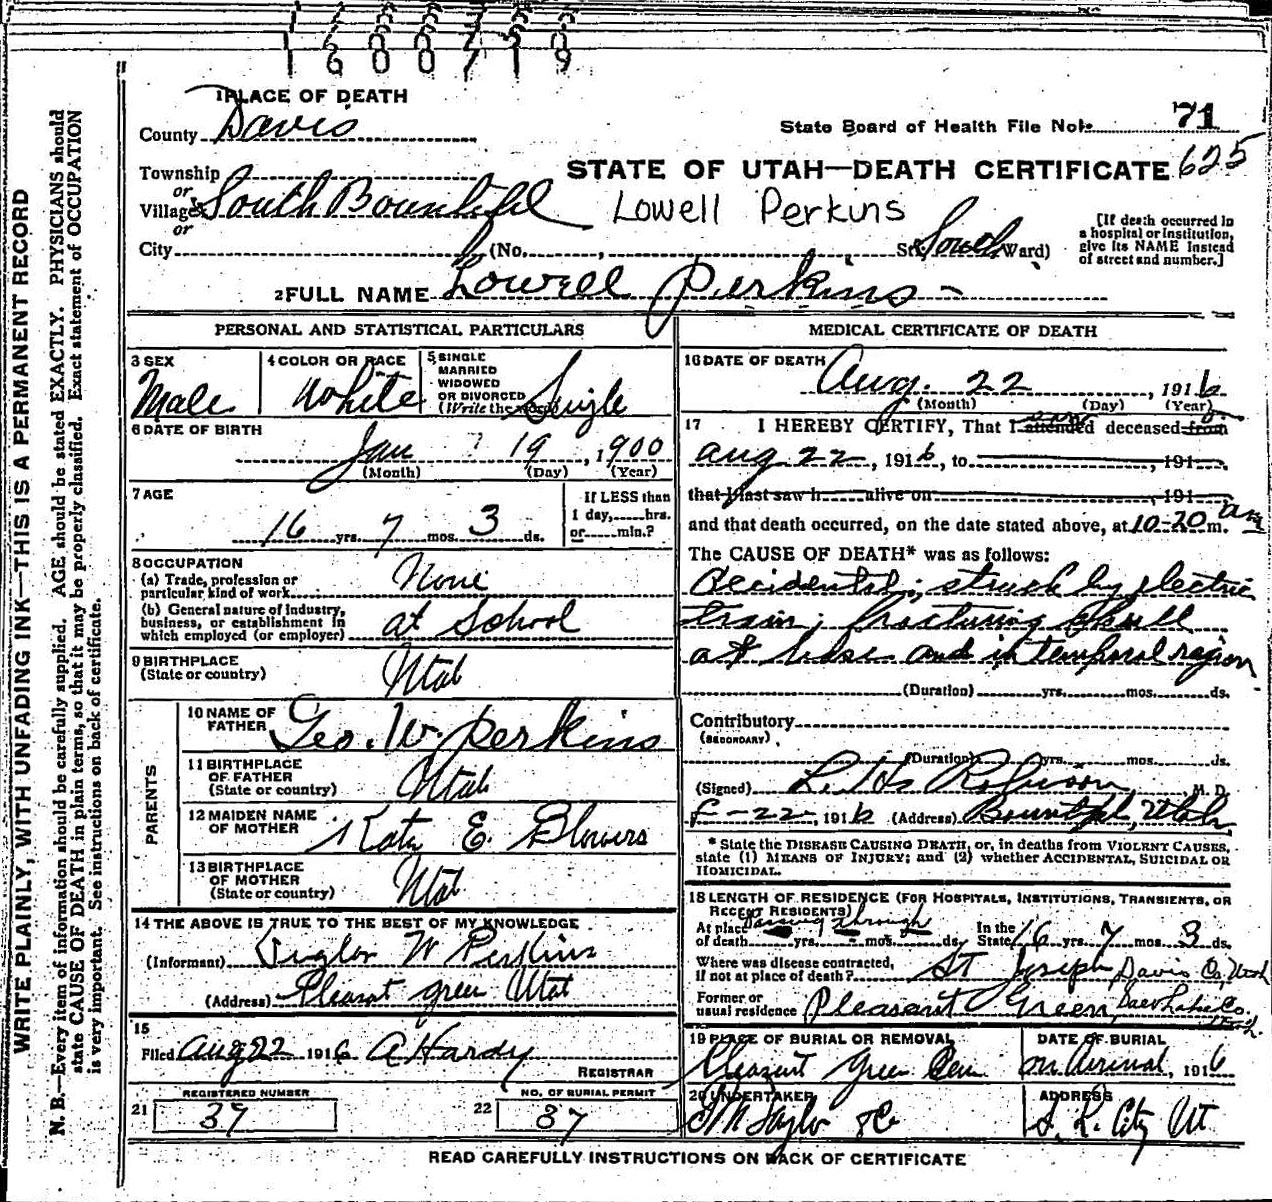 1600719
1 PLACE OF DEATH
County Davis
State Board of Health File No. 71
Township
or
Village South Bountiful
or
City (No. , St. South Ward)
STATE OF UTAH—DEATH CERTIFICATE 625
Lowell Perkins
[If death occurred in
a hospital or institution,
give its NAME instead
of street and number.]
2 FULL NAME Lowell Perkins
PERSONAL AND STATISTICAL PARTICULARS
3 SEX
Male
4 COLOR OR RACE
White
5 SINGLE
MARRIED
WIDOWED
OR DIVORCED
(Write the word) Single
6 DATE OF BIRTH
Jan 19, 1900
(Month) (Day) (Year)
7 AGE
16 yrs. 7 mos. 3 ds.
If LESS than
1 day, hrs.
or min.?
8 OCCUPATION
(a) Trade, profession or
particular kind of work None
(b) General nature of industry,
business, or establishment in
which employed (or employer) at School
9 BIRTHPLACE
(State or country) Utah
PARENTS
10 NAME OF
FATHER Geo. W. Perkins
11 BIRTHPLACE
OF FATHER
(State or country) Utah
12 MAIDEN NAME
OF MOTHER Katy E. Blowers
13 BIRTHPLACE
OF MOTHER
(State or country) Utah
14 THE ABOVE IS TRUE TO THE BEST OF MY KNOWLEDGE
(Informant) W Perkins
(Address) Pleasant green Utah
15
Filed Aug 22 1916 A Hardy
REGISTRAR
21 REGISTERED NUMBER
37
22 NO. OF BURIAL PERMIT
37
MEDICAL CERTIFICATE OF DEATH
16 DATE OF DEATH
Aug. 22, 1916
(Month) (Day) (Year)
17 I HEREBY CERTIFY, That I attended saw deceased from
Aug 22, 1916, to , 191
that I last saw h alive on 191
and that death occurred, on the date stated above, at 10-20 m. am
The CAUSE OF DEATH* was as follows:
Accidental; struck by electric
train; fracturing skull
at base and in temporal region
(Duration) yrs. mos. ds.
Contributory
(SECONDARY)
(Duration) yrs. mos. ds.
(Signed) Robinson, M. D.
8-22, 1916 (Address) Bountiful, Utah
* State the DISEASE CAUSING DEATH, or, in deaths from VIOLENT CAUSES,
state (1) MEANS OF INJURY; and (2) whether ACCIDENTAL, SUICIDAL OR
HOMICIDAL.
18 LENGTH OF RESIDENCE (FOR HOSPITALS, INSTITUTIONS, TRANSIENTS, OR
RECENT RESIDENTS)
At place passing through In the
of death yrs. mos. ds. State 16 yrs. 7 mos. 3 ds.
Where was disease contracted,
if not at place of death? St Joseph Davis Co, Utah
Former or
usual residence Pleasant Green, Salt Lake Co. Utah.
19 PLACE OF BURIAL OR REMOVAL
Pleasant Green Cem
DATE OF BURIAL
on arrival, 1916
20 UNDERTAKER
Taylor & Co
ADDRESS
S. L. City Ut
READ CAREFULLY INSTRUCTIONS ON BACK OF CERTIFICATE
WRITE PLAINLY, WITH UNFADING INK—THIS IS A PERMANENT RECORD
N. B.—Every item of information should be carefully supplied. AGE should be stated EXACTLY. PHYSICIANS should
state CAUSE OF DEATH in plain terms, so that it may be properly classified. Exact statement of OCCUPATION
is very important. See instructions on back of certificate.